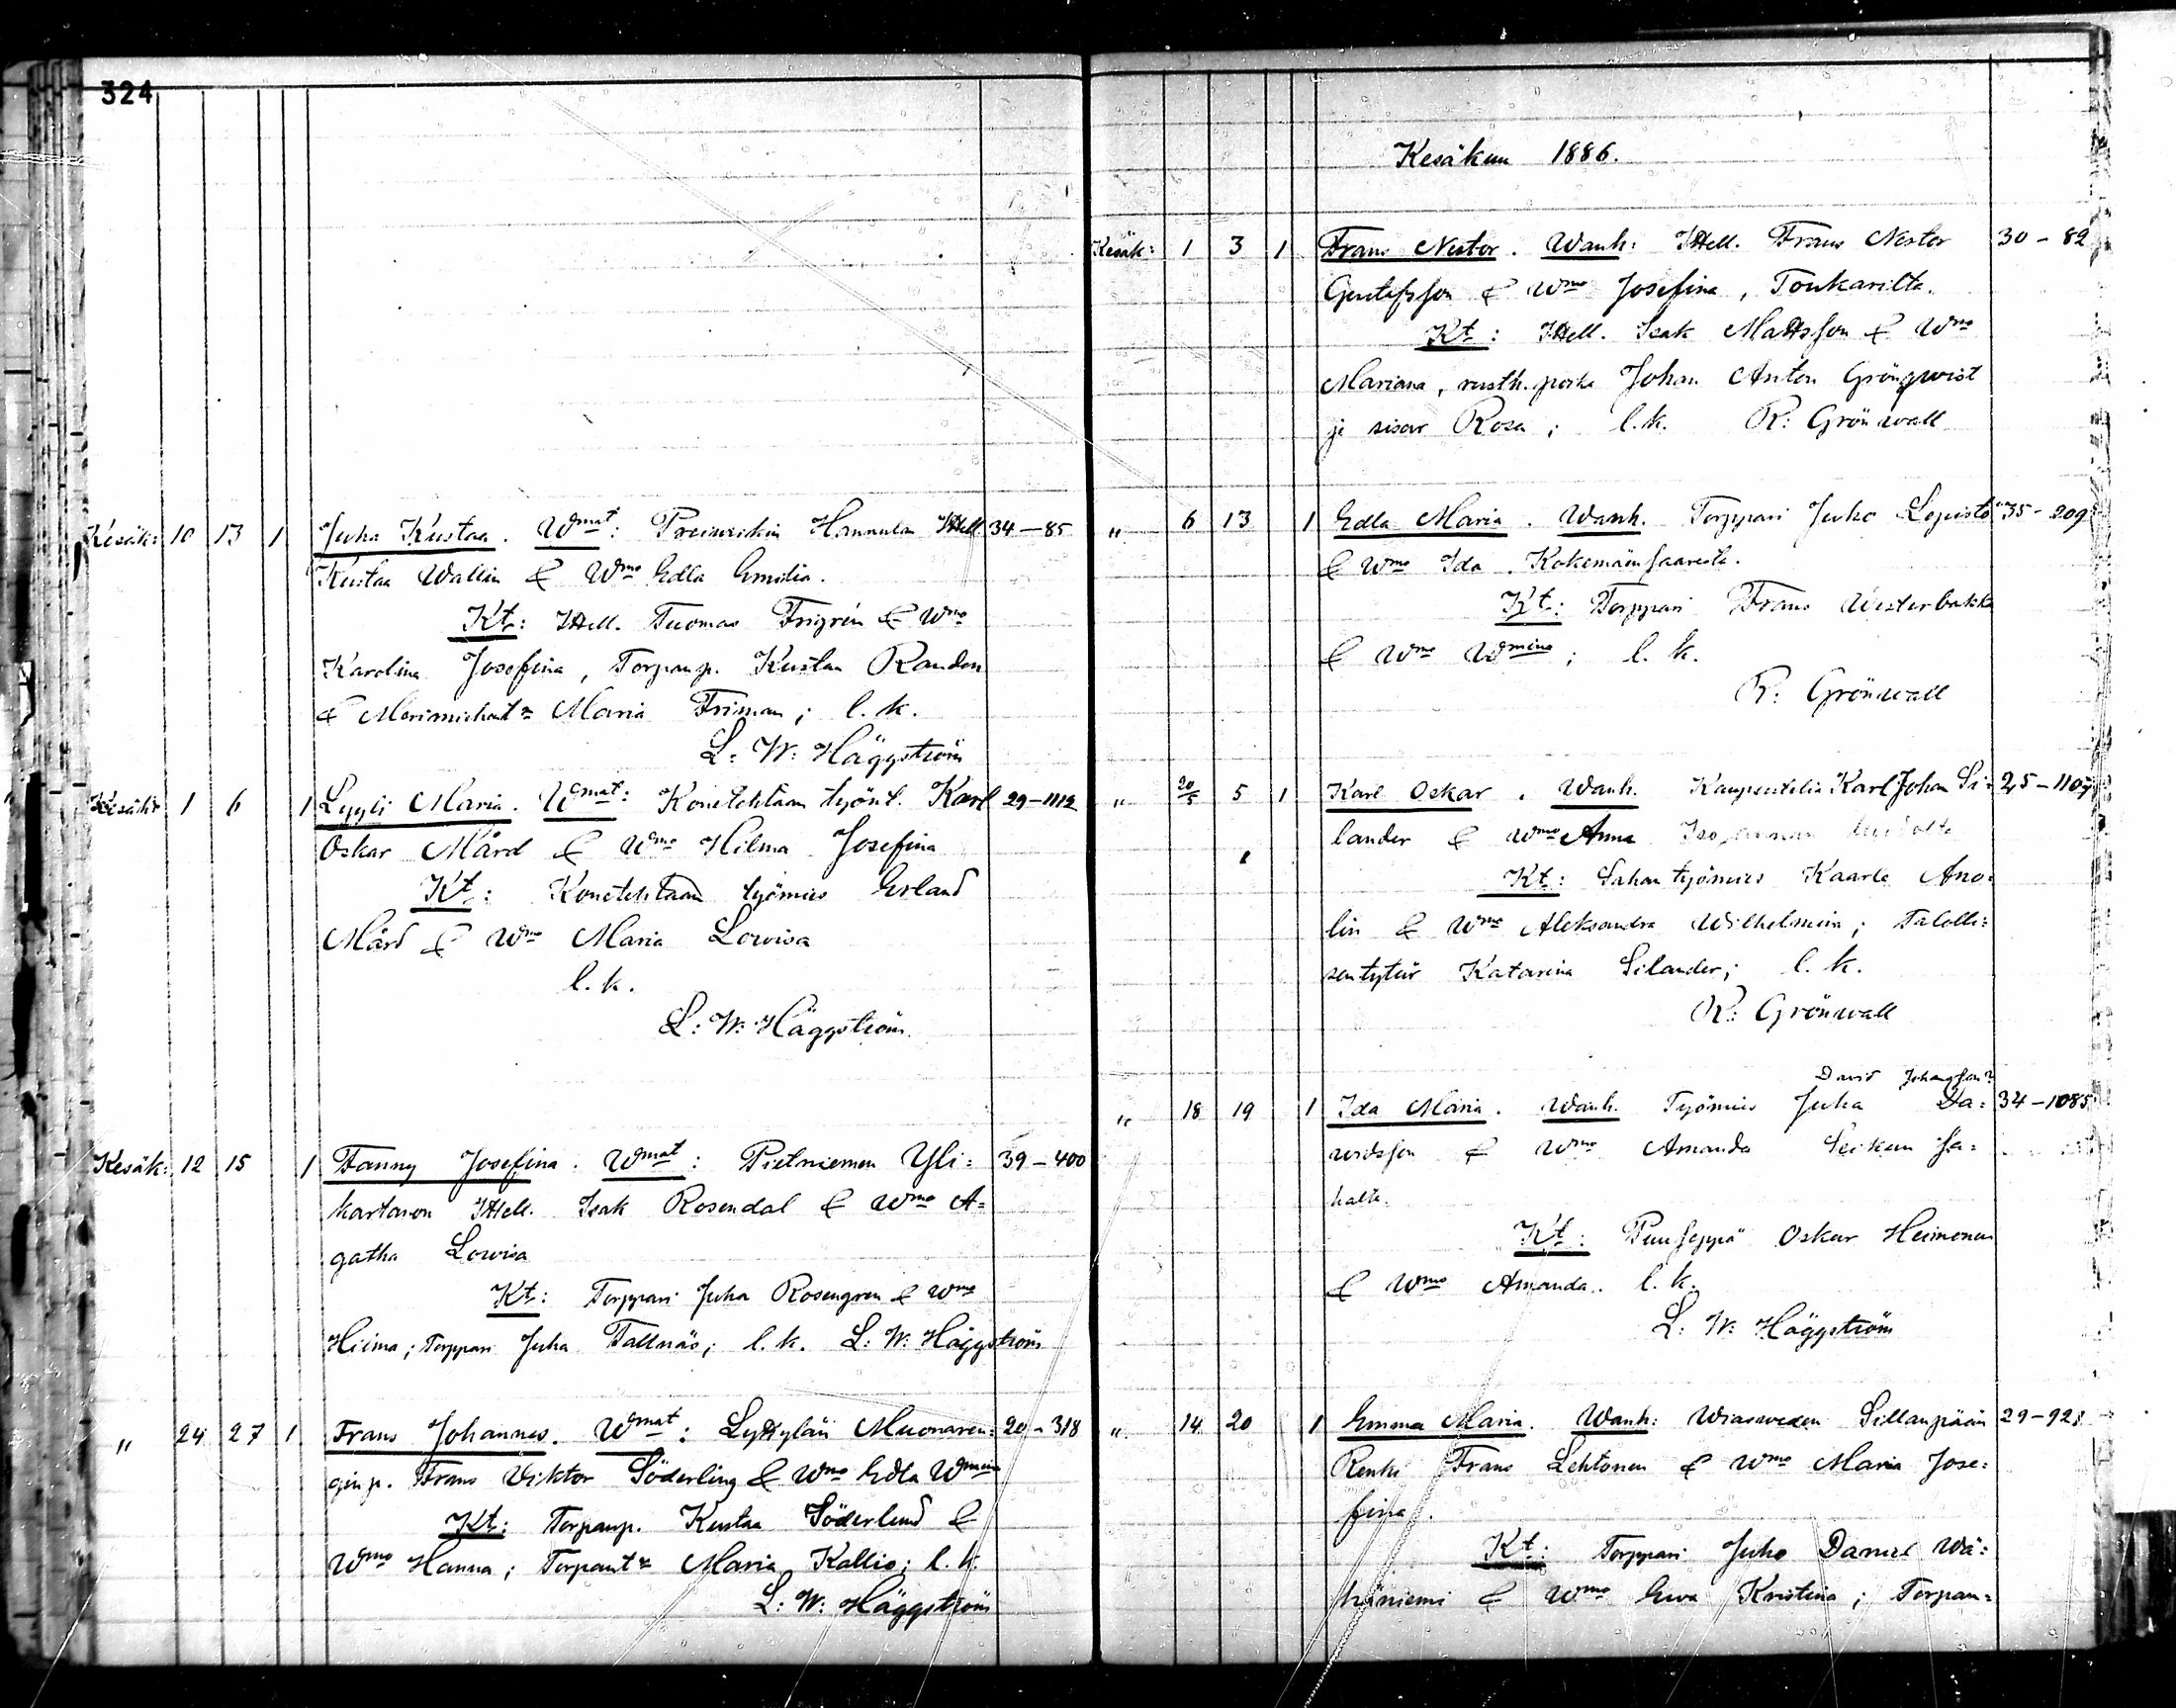 324
Kesäk: 10 13 1 Juha Kustaa. Wmat: Preiwiikin Hannulan Itsell 34-85
Kustaa Wallin & Wmo Edla Emilia.
Kt: Itsell. Tuomas Frigrén & Wmo
Karolina Josefina, Torpanp. Kustaa Randen
& Merimiehent:r Maria Friman; l.k.
L: W: Häggström
Kesäk: 1 6 1 Lyyli Maria. Wmat: Konetehtaan työnt. Karl 29-1112
Oskar Mård & Wmo Hilma Josefina
Kt: Konetehtaan työmies Erland
Mård & Wmo Maria Lowisa
l.k.
L: W: Häggström.
Kesäk: 12 15 1 Fanny Josefina. Wmat: Pietniemen Yli= 39-400
kartanon Itsell. Isak Rosendal & Wmo A=
gatha Lowisa
Kt: Torppari Juha Rosengren & Wmo
Hilma; Torppari Juha Tallnäs; l.k. L: W: Häggström
" 24 27 1 Frans Johannes. Wmat: Lyttylän Muonaren= 20-318
gin p. Frans Viktor Söderling & Wmo Edla Wmina
Kt: Torpanp. Kustaa Söderlund &
Wmo Hanna; Torpant:r Maria Kallio; l.k.
L: W: Häggström
Kesäkuu 1886.
Kesäk: 1 3 1 Frans Nestor. Wanh: Itsell. Frans Nestor 30-82
Gustafsson & Wmo Josefina, Toukarilta.
Kt: Itsell. Isak Mattsson & Wmo
Mariana, rusth. poika Johan Anton Grönqwist
ja sisar Rosa; l.k. R: Grönwall
" 6 13 1 Edla Maria. Wanh. Torppari Juho Lepistö 35-209
& Wmo Ida. Kokemäensaaresta.
Kt: Torppari Frans Westerbakka
& Wmo Wmina; l.k.
R: Grönwall
" 20/5 5 1 Karl Oskar. Wanh. Kaupustelia Karl Johan Si= 25-1107
lander & Wmo Anna
Kt: Sahan työmies Kaarle Ano=
lin & Wmo Aleksandra Wilhelmina; Talolli=
sentytär Katarina Silander; l.k.
R: Grönwall
David Johansson?
" 18 19 1 Ida Maria. Wanh. Työmies Juha Da= 34-1085
widsson & Wmo Amanda Seikun Sa=
halta.
Kt: Puuseppä Oskar Heimonen
& Wmo Amanda. l.k.
L: W: Häggström
" 14 20 1 Emma Maria. Wanh: Wiasweden Sillanpään 29-921
Renki Frans Lehtonen & Wmo Maria Jose=
fina.
Kt: Torppari Juho Daniel Wä=
häniemi & Wmo Ewa Kristina; Torpan=